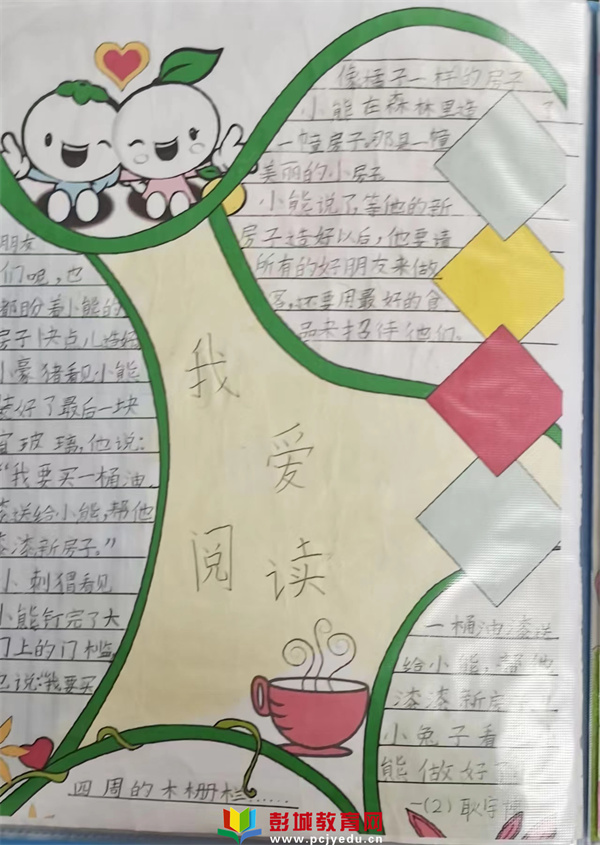 像橘子一样的房子
小能在森林里造
一幢房子那是一幢
美丽的小房子
小能说了,等他的新
房子造好以后,他要请
所有的好朋友来做
客,还要用最好的食
品来招待他们。
朋友
们呢,也
都盼着小能的
房子快点儿造好
小豪猪看见小能
装好了最后一块
玻璃,他说:
“我要买一桶油
漆送给小能,帮他
漆漆新房子。”
小刺猬看见
小熊钉完了大
门上的门槛,
也说:“我要买
我
爱
阅
读
一桶油漆送
给小能,帮他
漆漆新房
小兔子看
能做好
四周的木栅栏......
一(2)耿
彭城教育网
www.pcjyedu.cn